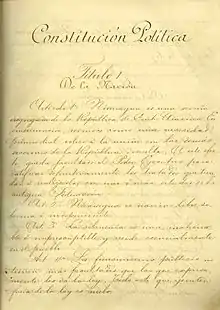 Constitución Política
Título I
De la Nación
Artículo 1º Nicaragua es una sección
de la República de Centro América. En
consecuencia, como una necesidad
primordial volver á la unión con las demás
secciones de la República
queda facultado el Poder Ejecutivo para
ratificar definitivamente los tratados que tiendan
á realizarla con uno ó más de los
antiguos Estados.
Art. 2º Nicaragua es nación libre, so-
berana é independiente.
Art. 3º La soberanía es una, inalienable
é imprescriptible y reside esencialmente
en el pueblo
Art. 4º Los funcionarios públicos no
tienen más facultades que las que expresa-
mente les da la ley. Todo acto que ejecuten
fuera de la ley es nulo.